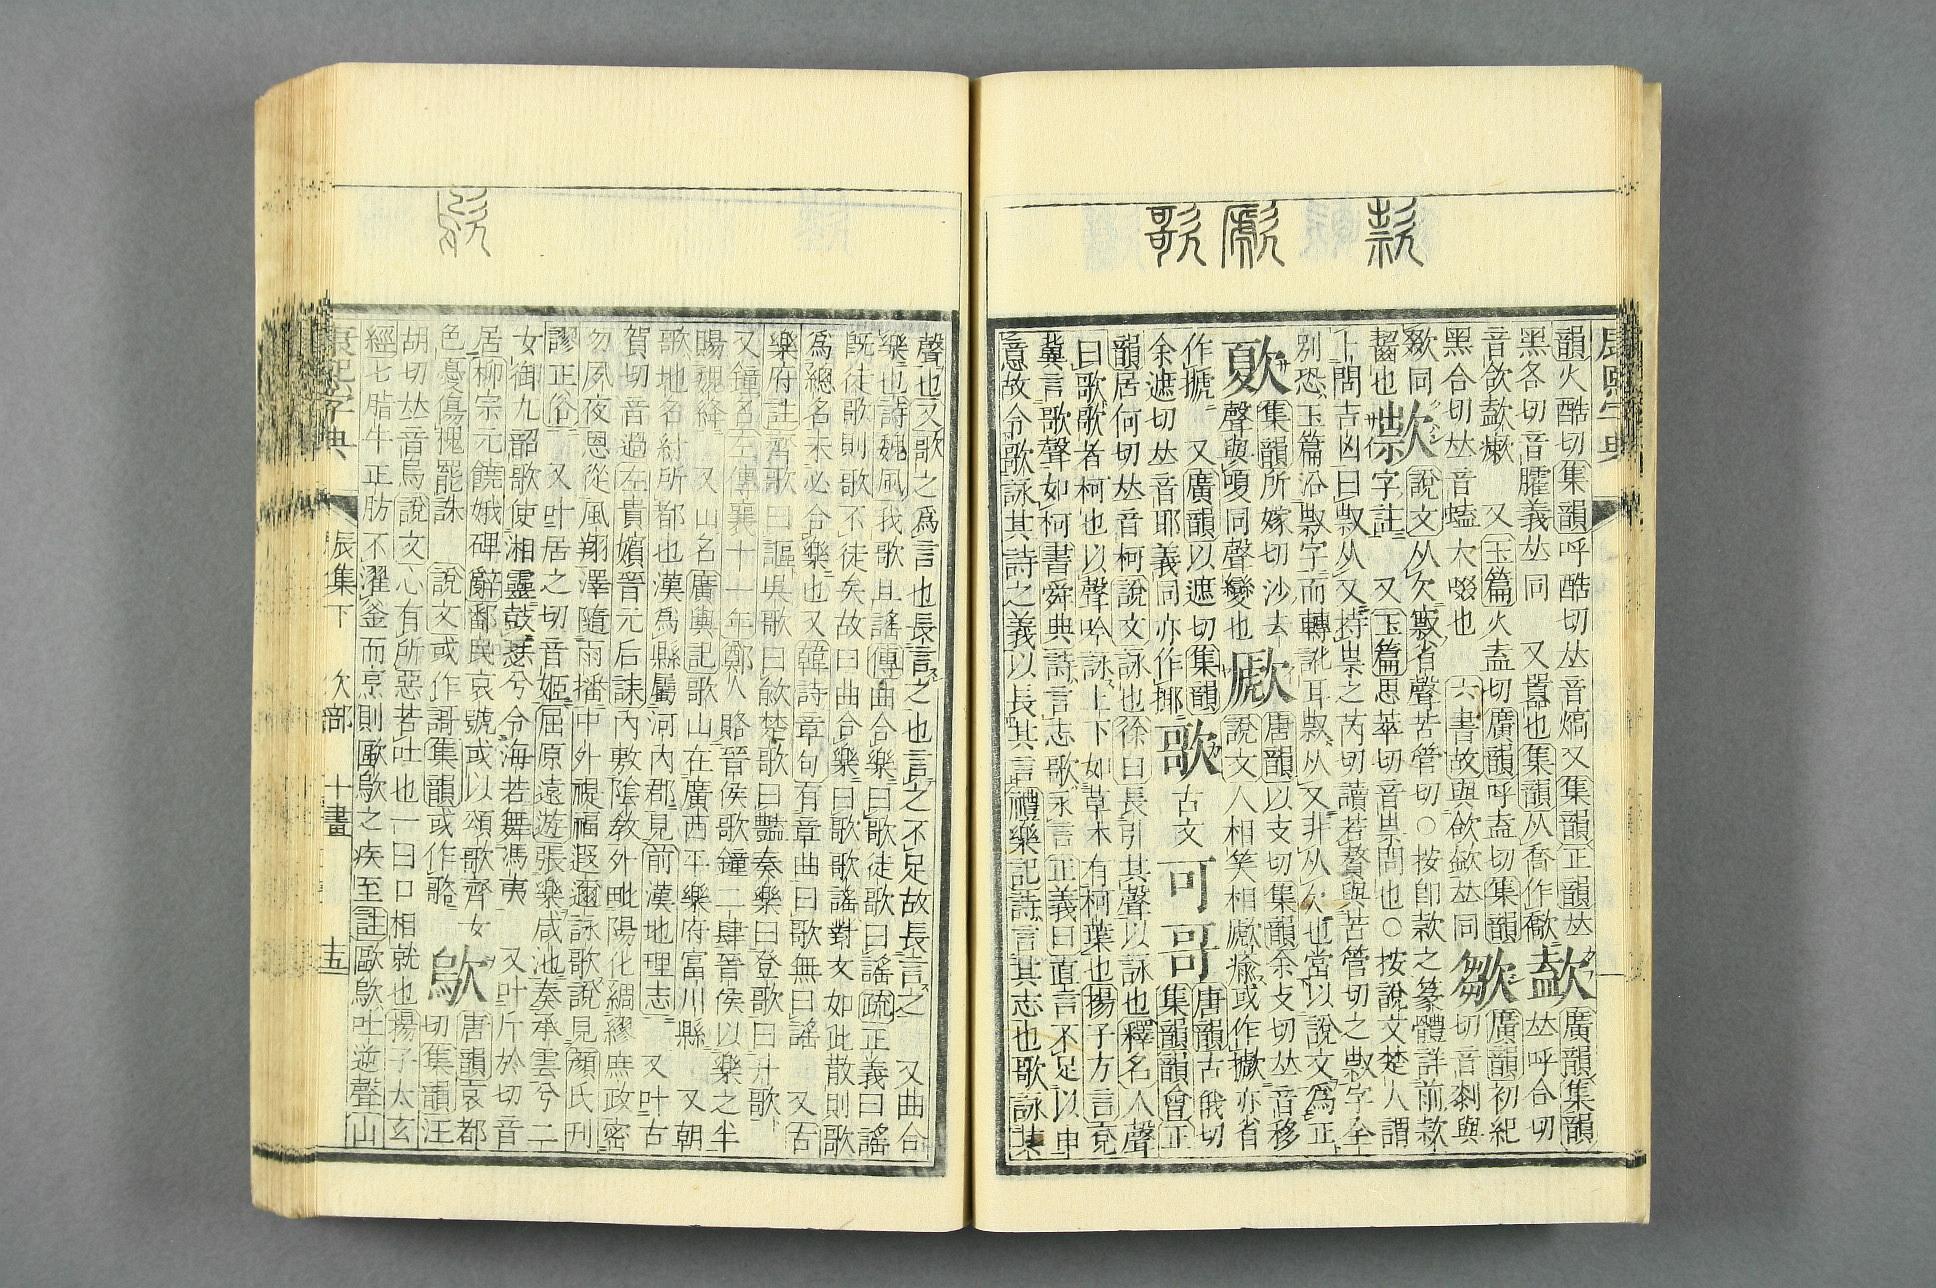 康熙字典
韻火酷切集韻呼酷切𠀤音熇又集韻正韻𠀤
黑各切音臛義𠀤同 又囂也集韻从喬作
廣韻集韻
𠀤呼合切
音欲 又玉篇火盍切廣韻呼盍切集韻
黑合切𠀤音嗑大啜也 六書故與欱歛𠀤同
廣韻初紀
切音剗與
欼同
齧也
款
說文从欠㱁省聲苦管切○按卽款之篆體詳前款
字註 又玉篇思萃切音祟問也○按說文楚人謂
卜問吉凶曰𣀔从又持祟之芮切讀若贅與苦管切之𣀔字全
別恐玉篇沿𣀔字而轉訛耳𣀔从又非从欠也當以說文爲正
集韻所嫁切沙去
聲與嗄同聲變也
歋
唐韻以支切集韻余支切𠀤音移
說文人相笑相歋瘉或作擨亦省
作搋 又廣韻以遮切集韻
余遮切𠀤音耶義同亦作揶
歌
古文
可
哥
唐韻古俄切
集韻韻會正
韻居何切𠀤音柯說文詠也徐曰長引其聲以詠也釋名人聲
曰歌歌者柯也以聲吟詠上下如草木有柯葉也揚子方言兗
冀言歌聲如柯書舜典詩言志歌永言正義曰直言不足以申
意故令歌詠其詩之義以長其言禮樂記詩言其志也歌詠其
聲也又歌之爲言也長言之也言之不足故長言之 又曲合
樂也詩魏風我歌且謠傳曲合樂曰歌徒歌曰謠疏正義曰謠
旣徒歌則歌不徒矣故曰曲合樂曰歌歌謠對文如此散則歌
爲總名未必合樂也又韓詩章句有章曲曰歌無曰謠 又古
樂府註齊歌曰謳吳歌曰歈楚歌曰豔奏樂曰登歌曰升歌
又鐘名左傳襄十一年鄭人賂晉侯歌鐘二肆晉侯以樂之半
賜魏絳 又山名廣輿記歌山在廣西平樂府富川縣 又朝
歌地名紂所都也漢爲縣屬河內郡見前漢地理志 又叶古
賀切音過左貴嬪晉元后誄內敷陰敎外毗陽化綢繆庶政密
勿夙夜恩從風翔澤隨雨播中外禔福遐邇詠歌說見顏氏刊
謬正俗 又叶居之切音姬屈原遠遊張樂咸池奏承雲兮二
女御九韶歌使湘靈鼓瑟兮令海若舞馮夷 又叶斤於切音
居柳宗元饒娥碑辭鄱民哀號或以頌歌齊女
色憂傷槐罷誅 說文或作謌集韻或作歌
歍
唐韻哀都
切集韻汪
胡切𠀤音烏說文心有所惡若吐也一曰口相就也揚子太玄
經七脂牛正肪不濯釜而烹則歐歍之疾至註歐歍吐逆聲山
康熙字典 辰集下 欠部 十畫 五